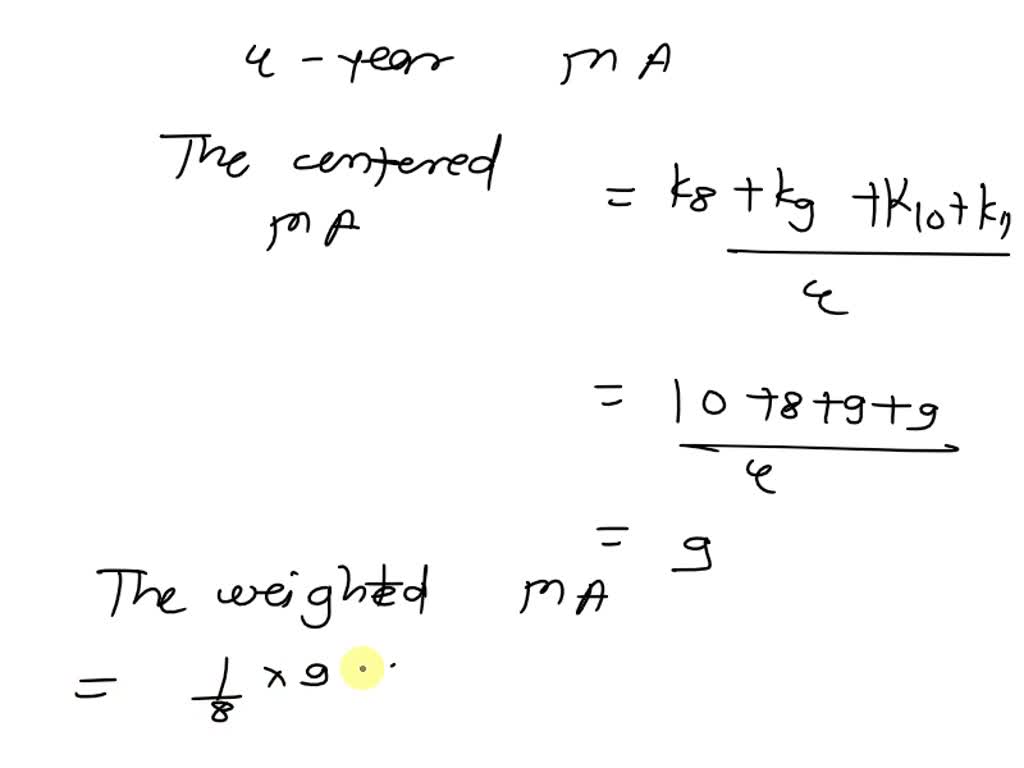 4 - year MA
The centered MA
= k8 + k9 + k10 + k11
4
= 10 + 8 + 9 + 9
4
= 9
The weighted MA
= 1/8 × 9 .